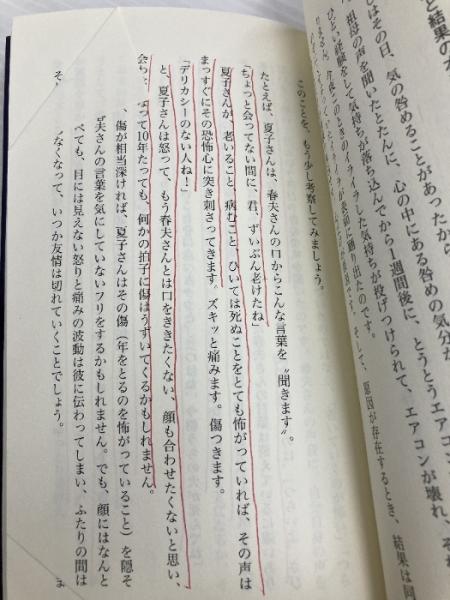 と結果の
はその日、気の咎めることがあったから
祖母の声を聞いたとたんに、心の中にある咎めの気分が
ひどい経験をして気持ちが落ち込んでから1週間後に、とうとうエアコン
今度はそのときのイライラした気持ちが投げつけられて、エアコンが壊れ、
イライラが表面に躍り出たのです。
そして、原因が存在するとき、結果は同
このことを、もう少し考察してみましょう。
たとえば、夏子さんは、春夫さんの口からこんな言葉を〝聞きます〟。
「ちょっと会ってない間に、君、ずいぶん老けたね」
夏子さんが、老いること、病むこと、ひいては死ぬことをとても怖がっていれば、その声は
まっすぐにその恐怖心に突き刺さってきます。ズキッと痛みます。傷つきます。
「デリカシーのない人ね！」
と、夏子さんは怒って、もう春夫さんとは口をききたくない、顔も合わせたくないと思い、
って10年たっても、何かの拍子に傷はうずいてくるかもしれません。
、傷が相当深ければ、夏子さんはその傷（年をとるのを怖がっていること）を隠そ
夫さんの言葉を気にしていないフリをするかもしれません。でも、顔にはなんと
べても、目には見えない怒りと痛みの波動は彼に伝わってしまい、ふたりの間は
なくなって、いつか友情は切れていくことでしょう。